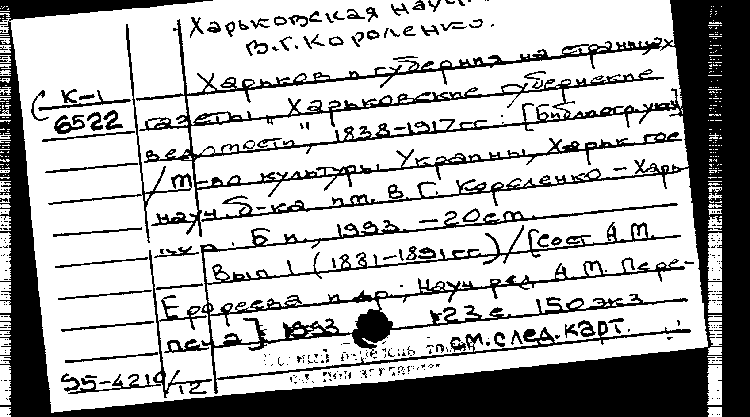 Харьковская науч.
В.Г. Короленко.
Харьков и губерния на страницах
К-1
газеты „Харьковские губернские
6522
ведомости", 1838-1917гг: [Библиогр. указ]
/ М-во культуры Украины, Харьк гос
науч. б-ка им. В. Г. Короленко - Харь
Б и., 1993. - 20см.
Вып 1 (1881-1891гг) / [Сост А.М.
и др; Науч ред А. М. Пере-
печа] 1993 123 с. 150 экз
см. след. карт.
95-4210/12